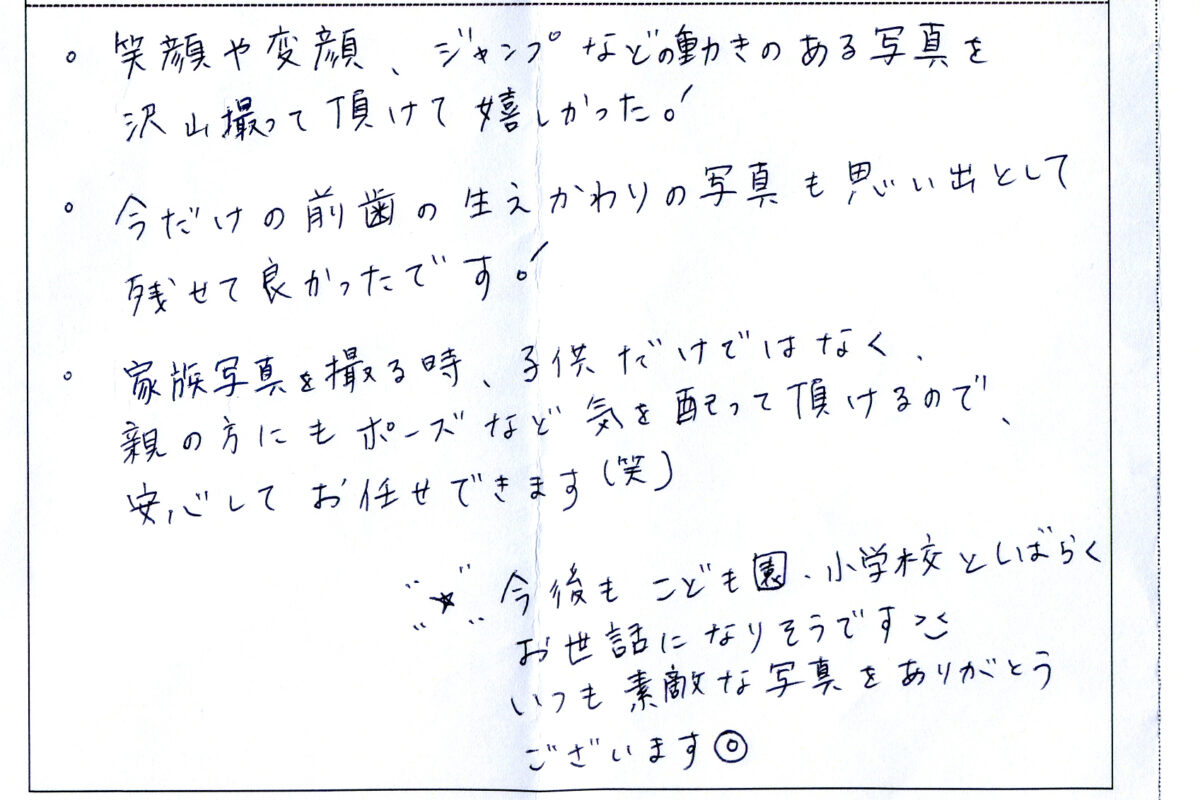 。笑顔や変顔、ジャンプなどの動きのある写真を
沢山撮って頂けて嬉しかった!
。今だけの前歯の生えかわりの写真も思い出として
残せて良かったです!
。家族写真を撮る時、子供だけではなく、
親の方にもポーズなど気を配って頂けるので、
安心してお任せできます(笑)
★今後もこども園、小学校としばらく
お世話になりそうです
いつも素敵な写真をありがとう
ございます◎